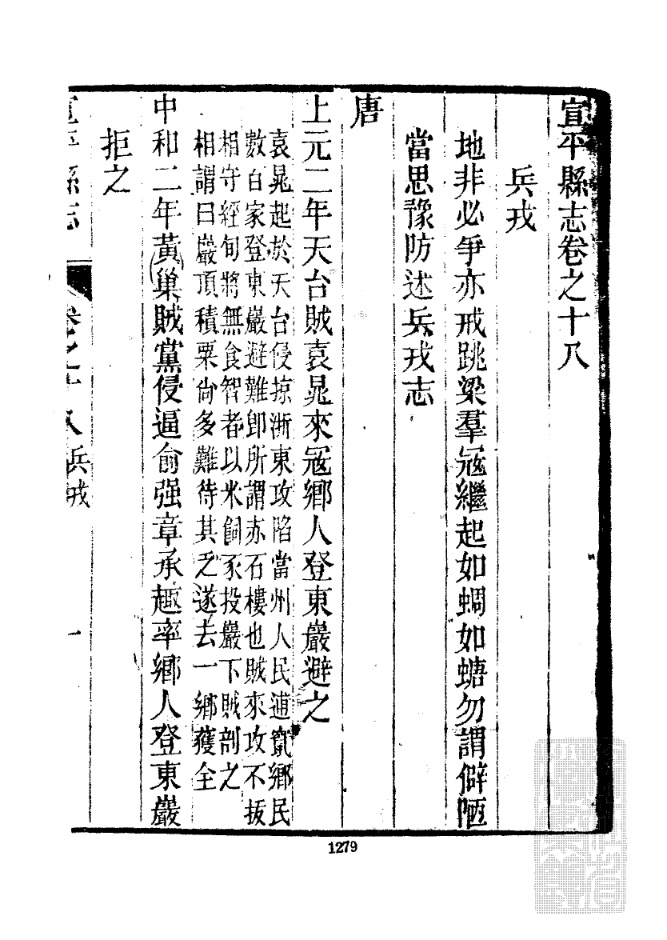 宣平縣志卷之十八
兵戎
地非必爭亦戒跳梁羣冦繼起如蜩如螗勿謂僻陋
當思豫防述兵戎志
唐
上元二年天台賊袁晁來冦鄉人登東巖避之
袁晁起於天台侵掠浙東攻陷當州人民逋竄鄉民
數百家登東巖避難卽所謂赤石樓也賊來攻不拔
相守經旬將無食智者以米飼豕投巖下賊剖之
相謂曰巖頂積粟尙多難待其乏遂去一鄉獲全
中和二年黃巢賊黨侵逼俞强章承趣率鄉人登東巖
拒之
宣平縣志
卷之十八 兵戎
一
1279